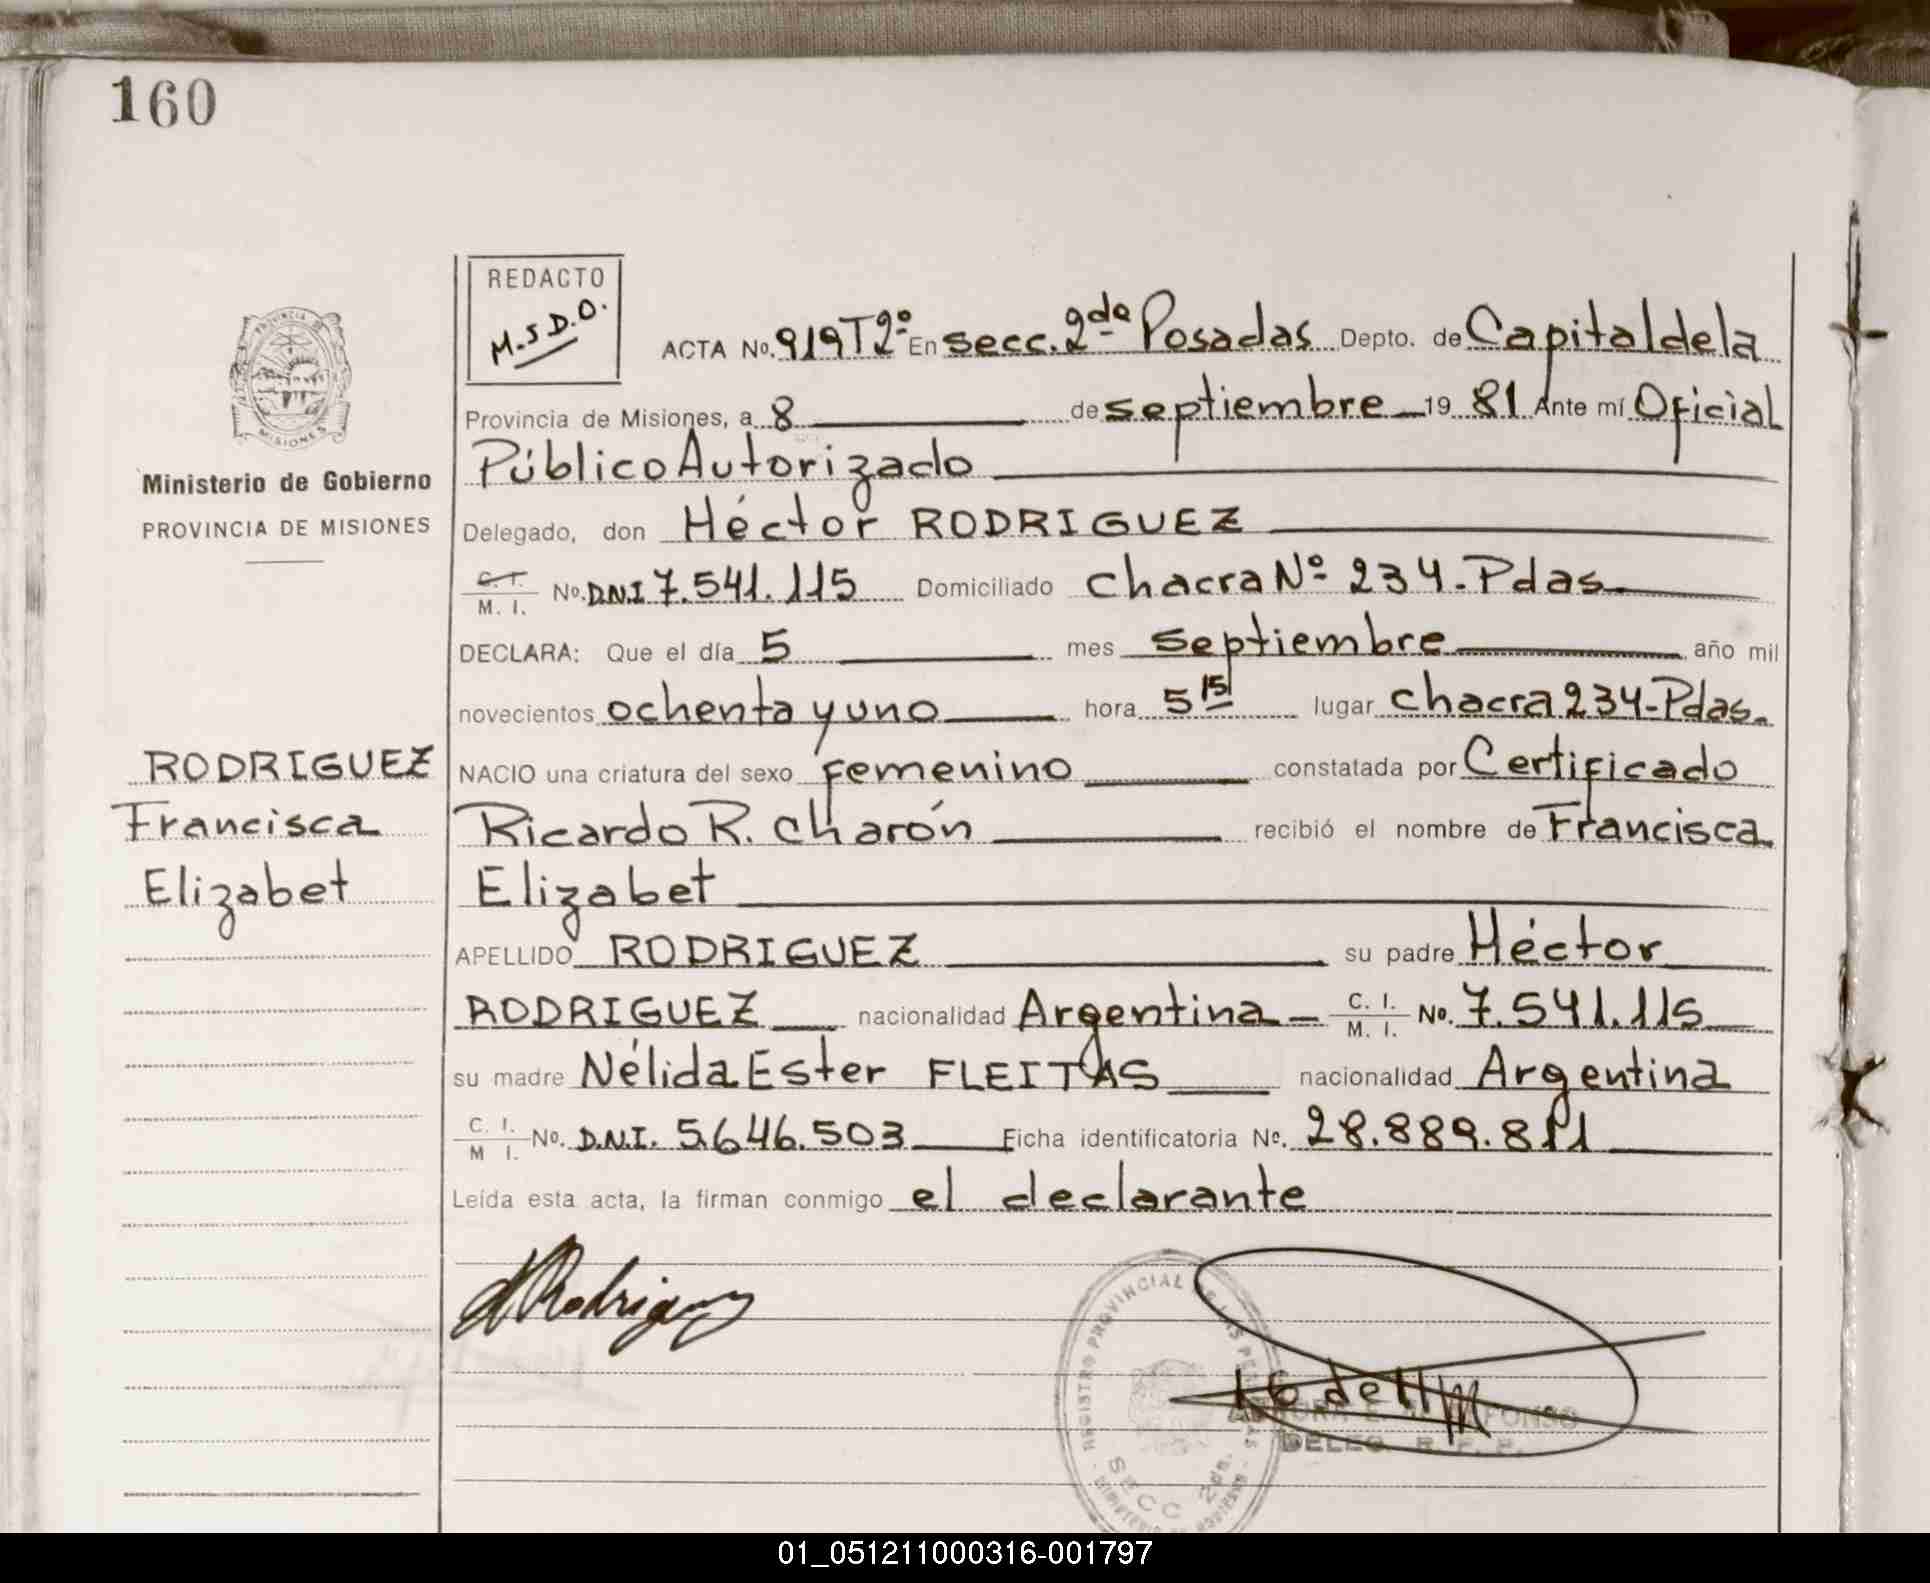 160
REDACTO
M.S.D.O.
ACTA No. 919T2º En secc. 2da Posadas Depto. de Capital de la
Provincia de Misiones, a 8 de septiembre 19 81 Ante mí Oficial
Público Autorizado
Ministerio de Gobierno
PROVINCIA DE MISIONES
Delegado, don Héctor RODRIGUEZ
C. I. M. I. No. D.N.I 7.541.115 Domiciliado chacra Nº 234-Pdas
DECLARA: Que el día 5 mes septiembre año mil
novecientos ochenta y uno hora 5 15 lugar chacra 234-Pdas.
RODRIGUEZ
Francisca
Elizabet
NACIO una criatura del sexo femenino constatada por Certificado
Ricardo R. Charón recibió el nombre de Francisca
Elizabet
APELLIDO RODRIGUEZ su padre Héctor
RODRIGUEZ nacionalidad Argentina - C. I. M. I. No. 7.541.115
su madre Nélida Ester FLEITAS nacionalidad Argentina
C. I. M I. No. D.N.I. 5.646.503 Ficha identificatoria No. 28.889.811
Leída esta acta, la firman conmigo el declarante
HRodriguez
REGISTRO PROVINCIAL DE LAS PERSONAS
SECC 2da.
MINISTERIO DE GOBIERNO
DELEG. R. P. P.
01_051211000316-001797